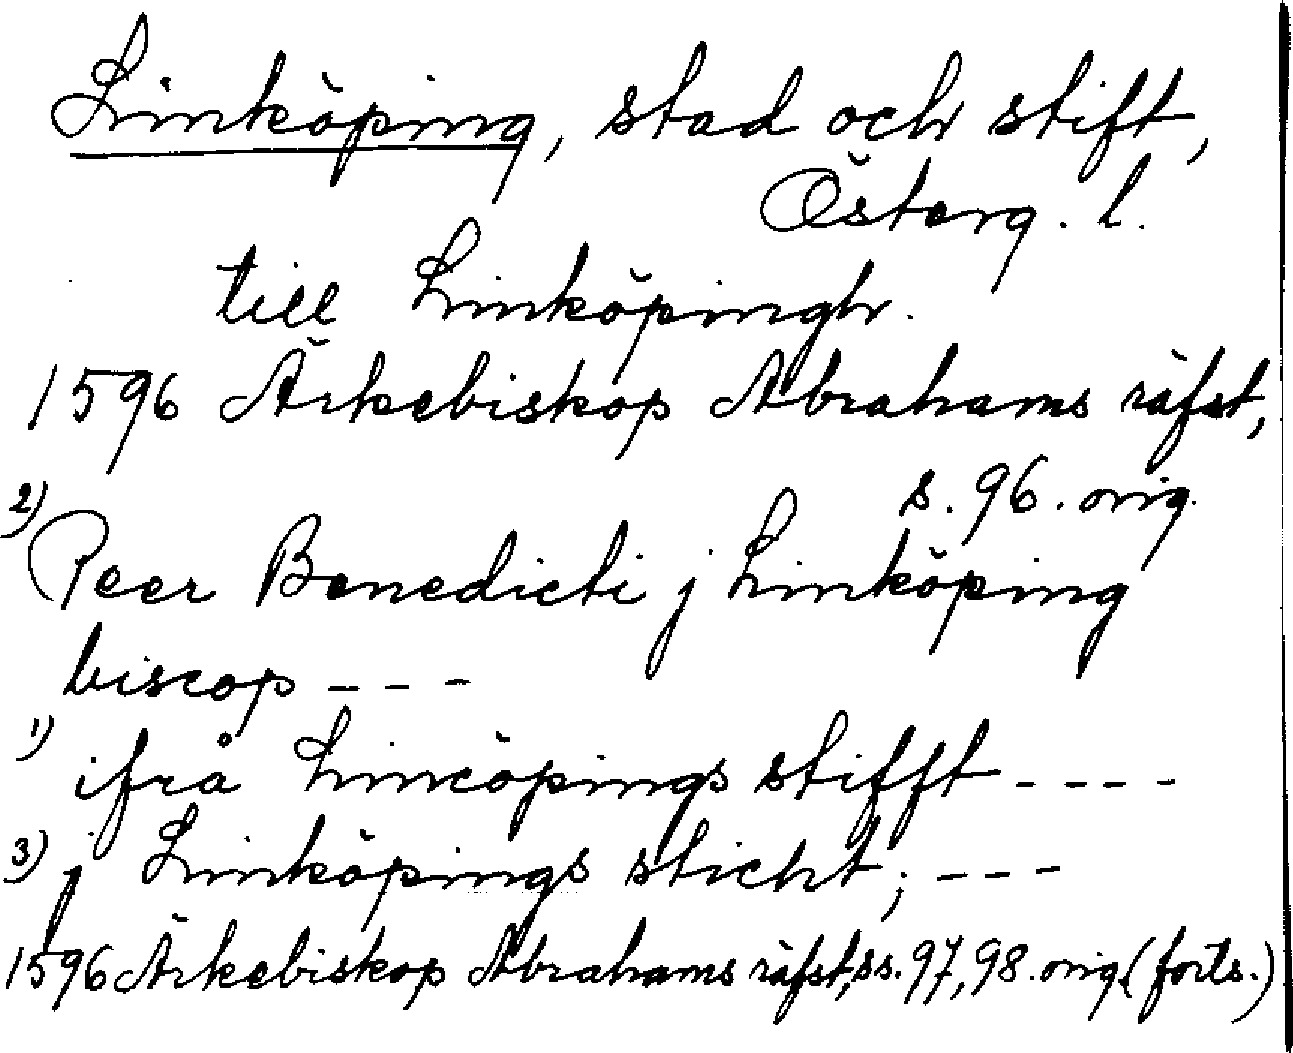 Linköping, stad och stift,
Österg. l.
till Linköpingh.
1596 Ärkebiskop Abrahams räfst,
s. 96. orig.
2) Peer Benedicti j Linköping
biscop - - -
1) ifrå Lincöpings stifft - - - -
3) j Linköpings sticht; - - -
1596 Ärkebiskop Abrahams räfst, ss. 97, 98. orig. (forts.)